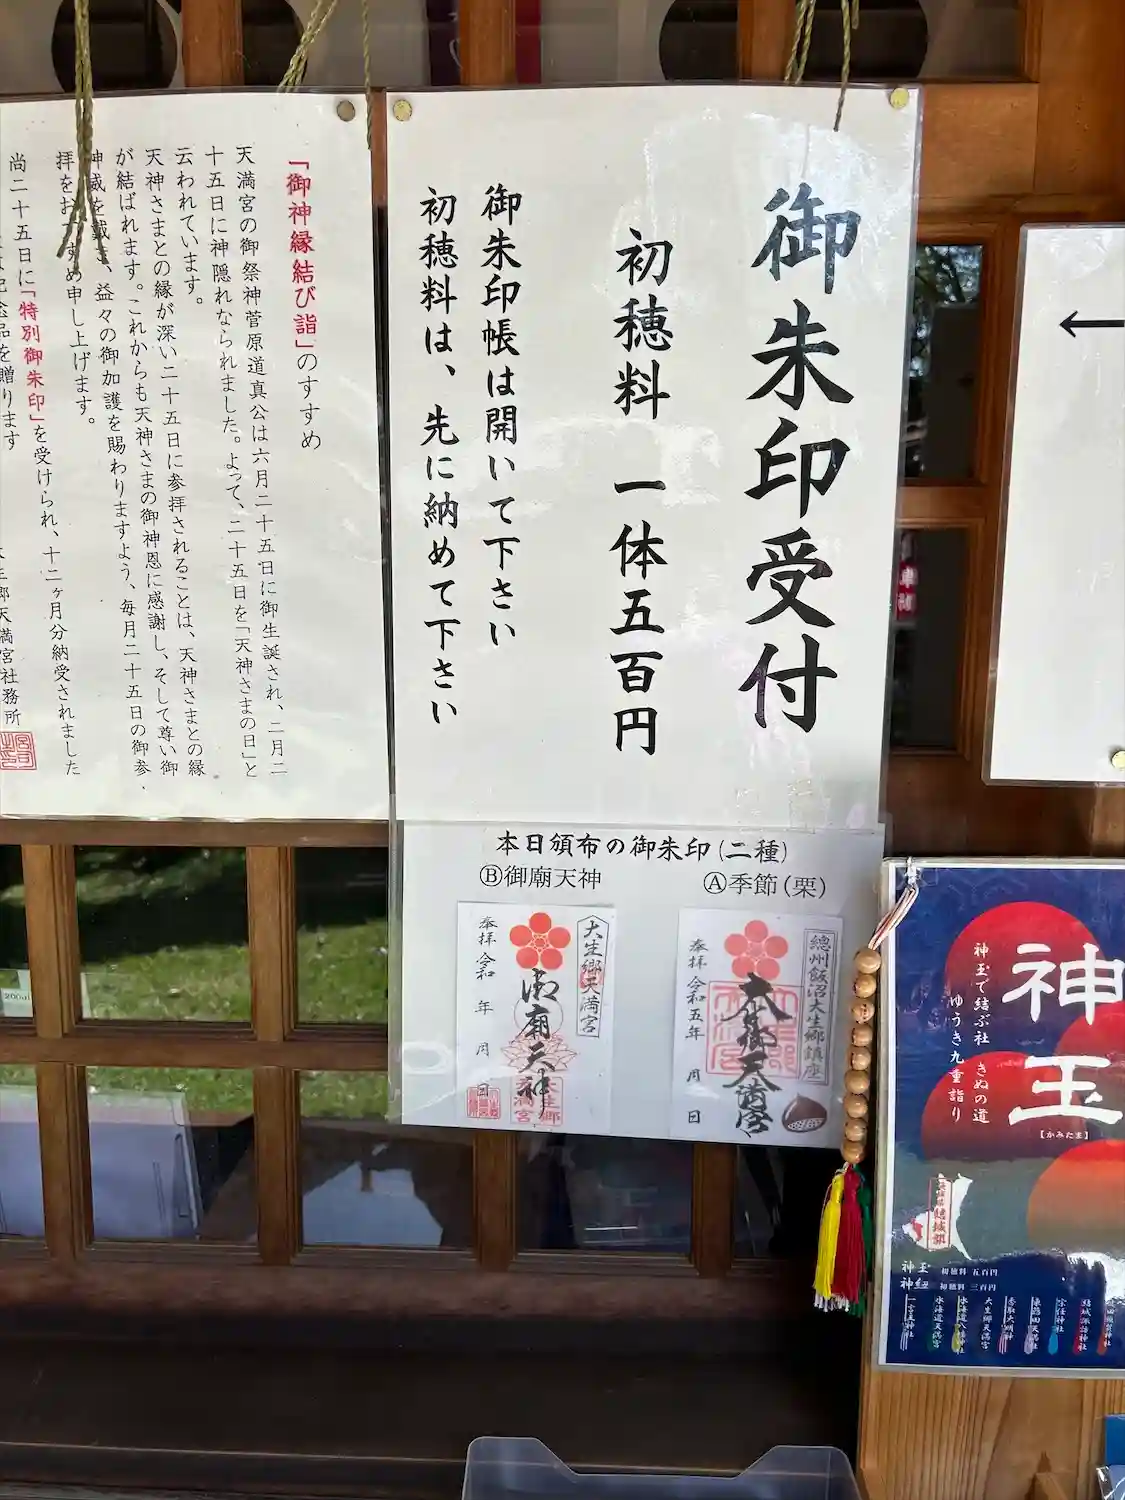 御朱印受付
初穂料 一体五百円
御朱印帳は開いて下さい
初穂料は、先に納めて下さい
本日頒布の御朱印(二種)
Ⓐ季節(栗)
Ⓑ御廟天神
總州飯沼大生郷鎮座
大生郷天満宮
奉拝 令和五年 月 日
大生郷天満宮
御廟天神
奉拝 令和 年 月 日
「御神縁結び詣」のすすめ
天満宮の御祭神菅原道真公は六月二十五日に御生誕され、二月二
十五日に神隠れなられました。よって、二十五日を「天神さまの日」と
云われています。
天神さまとの縁が深い二十五日に参拝されることは、天神さまとの縁
が結ばれます。これからも天神さまの御神恩に感謝し、そして尊い御
神威を戴き、益々の御加護を賜わりますよう、毎月二十五日の御参
拝をおすすめ申し上げます。
尚二十五日に「特別御朱印」を受けられ、十二ヶ月分納受されました
記念品を贈ります
生郷天満宮社務所
←
神玉
【かみたま】
神玉で結ぶ社 きぬの道
ゆうき九重詣り
神玉 初穂料 五百円
神紐 初穂料 三百円
一言主神社
水海道天満宮
水海道八幡神社
大生郷天満宮
香取大明神
宗任神社
結城諏訪神社